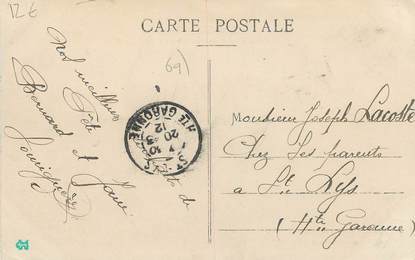 12 €
CARTE POSTALE
69)
Nos meilleurs
de
Fête
Bernard et
HTE GARONNE
20
12
Monsieur Joseph Lacoste
Chez Ses parents
à Ste Lys
(Hte Garonne)